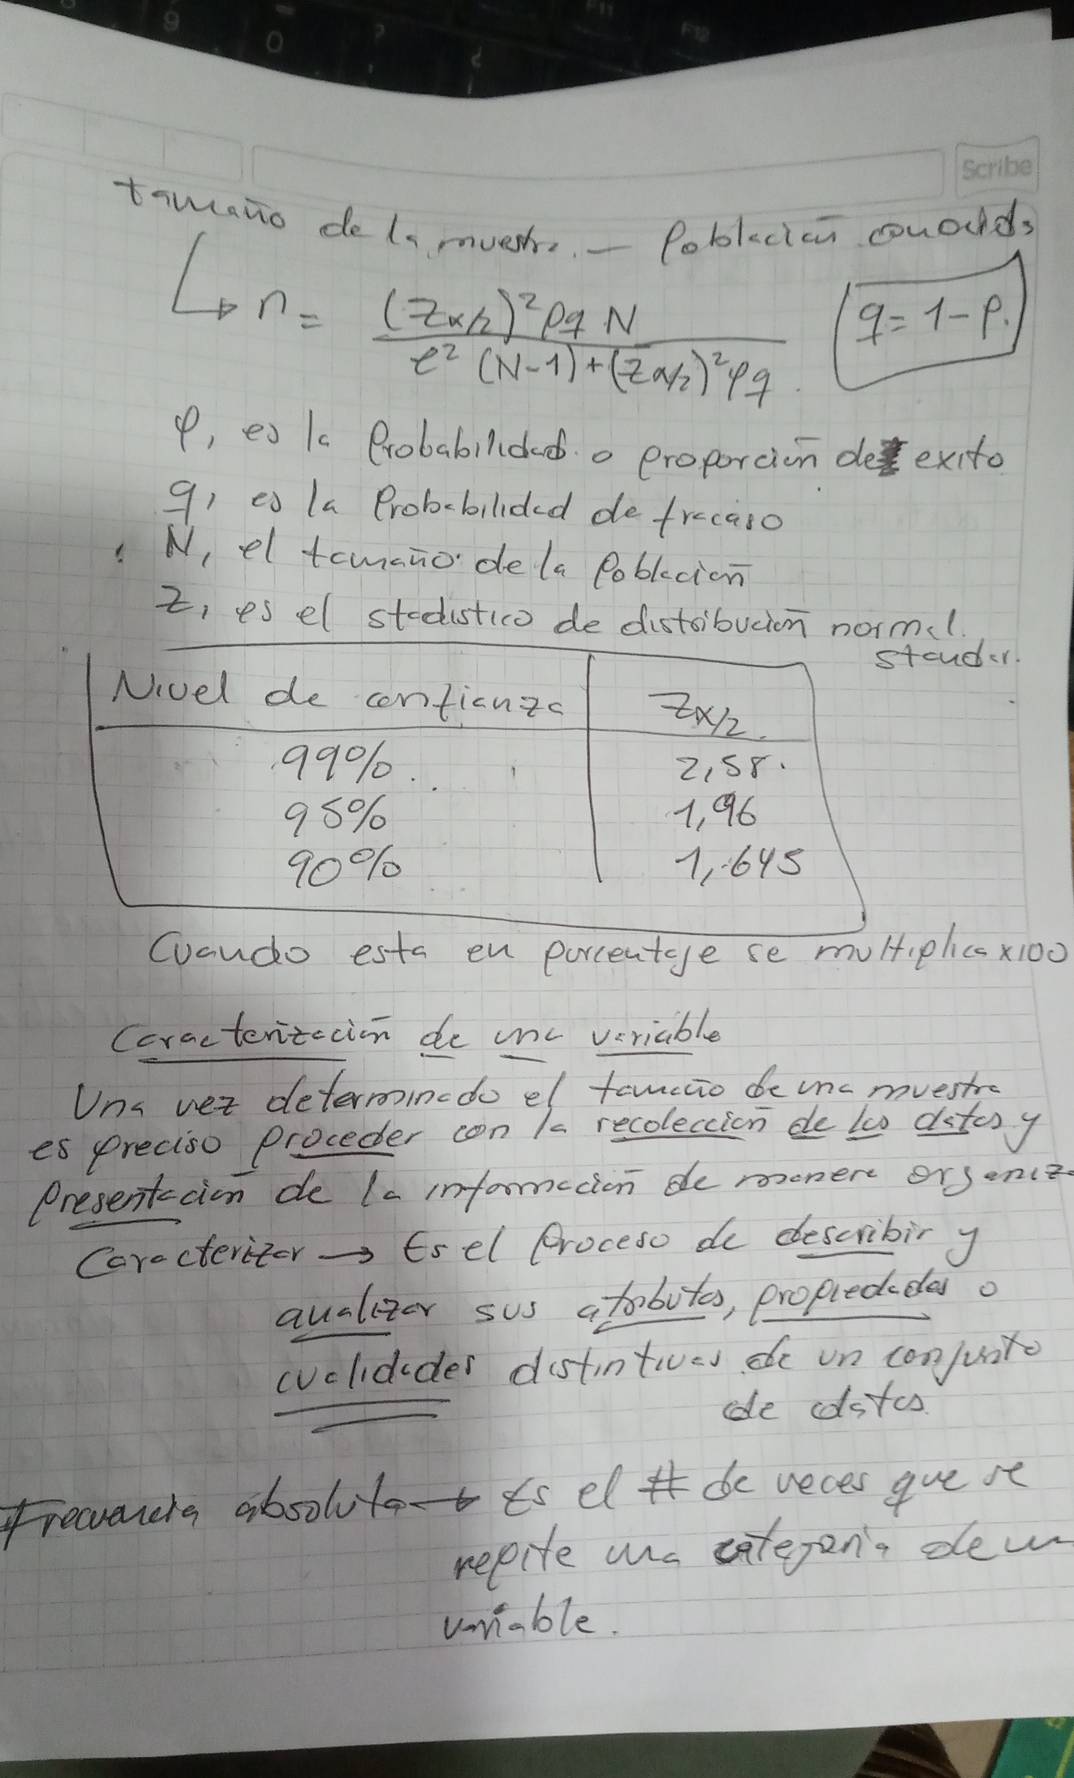 Scribe
tamaño de la muestra. — Población conocida
↳ n = (Zα/2)² pq N / e² (N-1) + (Zα/2)² pq
q = 1 - p.
p, es la Probabilidad o proporción de exito
q, es la Probabilidad de fracaso
N, el tamaño de la Población
Z, es el stadistico de distribución normal
standar.
Nivel de confianza Zα/2
99% 2,58
95% 1,96
90% 1,645
Cuando esta en porcentaje se multiplica x100
Caracterización de una variable
Una vez determinado el tamaño de una muestra
es preciso proceder con la recolección de los datos y
Presentación de la información de manera organiz
Caracterizar → Es el Proceso de describir y
analizar sus atributos, propiedades o
cualidades distintivas de un conjunto
de datos
Frecuencia absoluta → Es el # de veces que se
repite una categoria de un
variable.